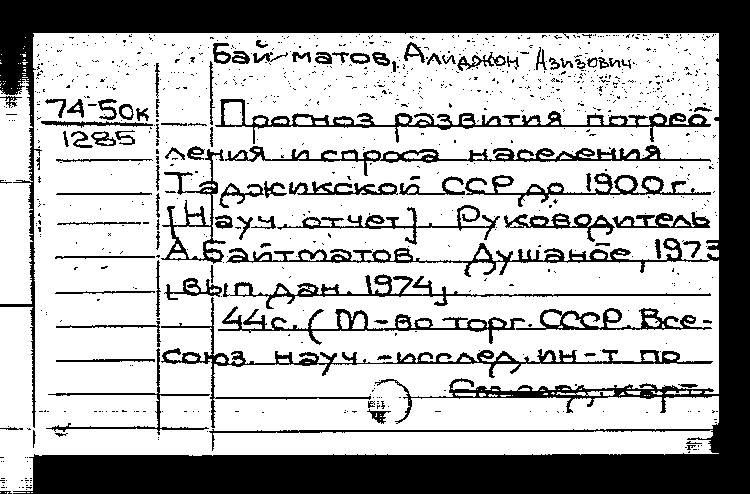 Байматов, Алиджон Азизович
74-50к
1285
Прогноз развития потреб-
ления и спроса населения
Таджикской ССР до 1900 г.
[Науч. отчет]. Руководитель
А. Байтматов. Душанбе, 1973
[вып. дан. 1974].
44с. (М-во торг. СССР. Все-
союз. науч.-исслед. ин-т по
См. след. карт.